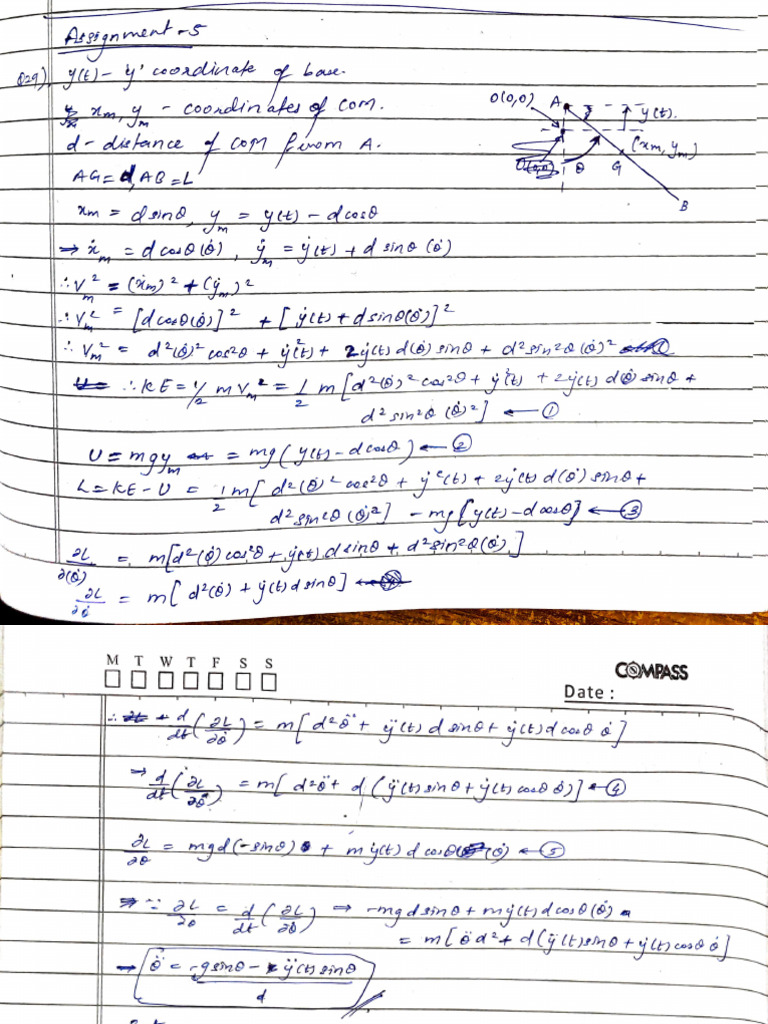 Assignment-5
Q29) y(t) - 'y' coordinate of base.
xₘ, yₘ - coordinates of COM.
d - distance of COM from A.
AG = d, AB = L
O(0,0) A y(t).
(xₘ, yₘ)
θ G
B
xₘ = d sinθ, yₘ = y(t) - d cosθ
⇒ ẋₘ = d cosθ (θ̇), ẏₘ = ẏ(t) + d sinθ (θ̇)
∴ Vₘ² = (ẋₘ)² + (ẏₘ)²
∴ Vₘ² = [d cosθ(θ̇)]² + [ẏ(t) + d sinθ(θ̇)]²
∴ Vₘ² = d²(θ̇)² cos²θ + ẏ²(t) + 2ẏ(t) d(θ̇) sinθ + d² sin²θ (θ̇)²
∴ KE = 1/2 m Vₘ² = 1/2 m [d²(θ̇)² cos²θ + ẏ²(t) + 2ẏ(t) d(θ̇) sinθ +
d² sin²θ (θ̇)²] ← ①
U = mgyₘ = mg(y(t) - d cosθ) ← ②
L = KE - U = 1/2 m[d²(θ̇)² cos²θ + ẏ²(t) + 2ẏ(t) d(θ̇) sinθ +
d² sin²θ (θ̇²)] - mg[y(t) - d cosθ] ← ③
∂L/∂(θ̇) = m[d²(θ̇) cos²θ + ẏ(t) d sinθ + d² sin²θ(θ̇)]
∂L/∂θ̇ = m[d²(θ̇) + ẏ(t) d sinθ]
M T W T F S S
COMPASS
Date :
∴ d/dt(∂L/∂θ̇) = m[d²θ̈ + ÿ(t) d sinθ + ẏ(t) d cosθ θ̇]
→ d/dt(∂L/∂θ̇) = m[d²θ̈ + d(ÿ(t) sinθ + ẏ(t) cosθ θ̇)] ← ④
∂L/∂θ = mgd(-sinθ) + mẏ(t) d cosθ (θ̇) ← ⑤
∵ ∂L/∂θ = d/dt(∂L/∂θ̇) ⇒ -mgd sinθ + mẏ(t) d cosθ(θ̇)
= m[θ̈d² + d(ÿ(t) sinθ + ẏ(t) cosθ θ̇]
→ θ̈ = -g sinθ - ÿ(t) sinθ / d